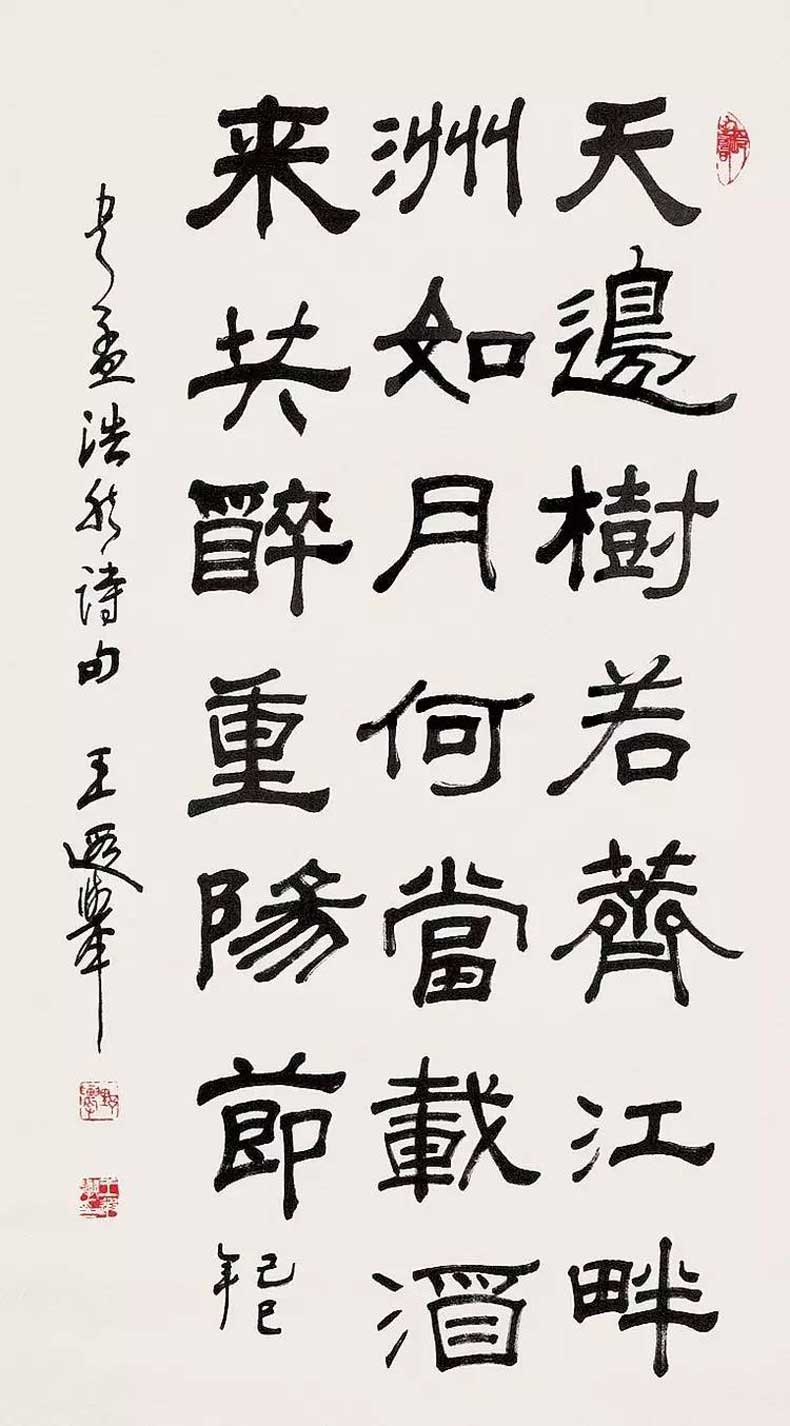 天邊樹若薺江畔
洲如月何當載酒
来共醉重陽節
己巳年
书孟浩然诗句 王遐舉